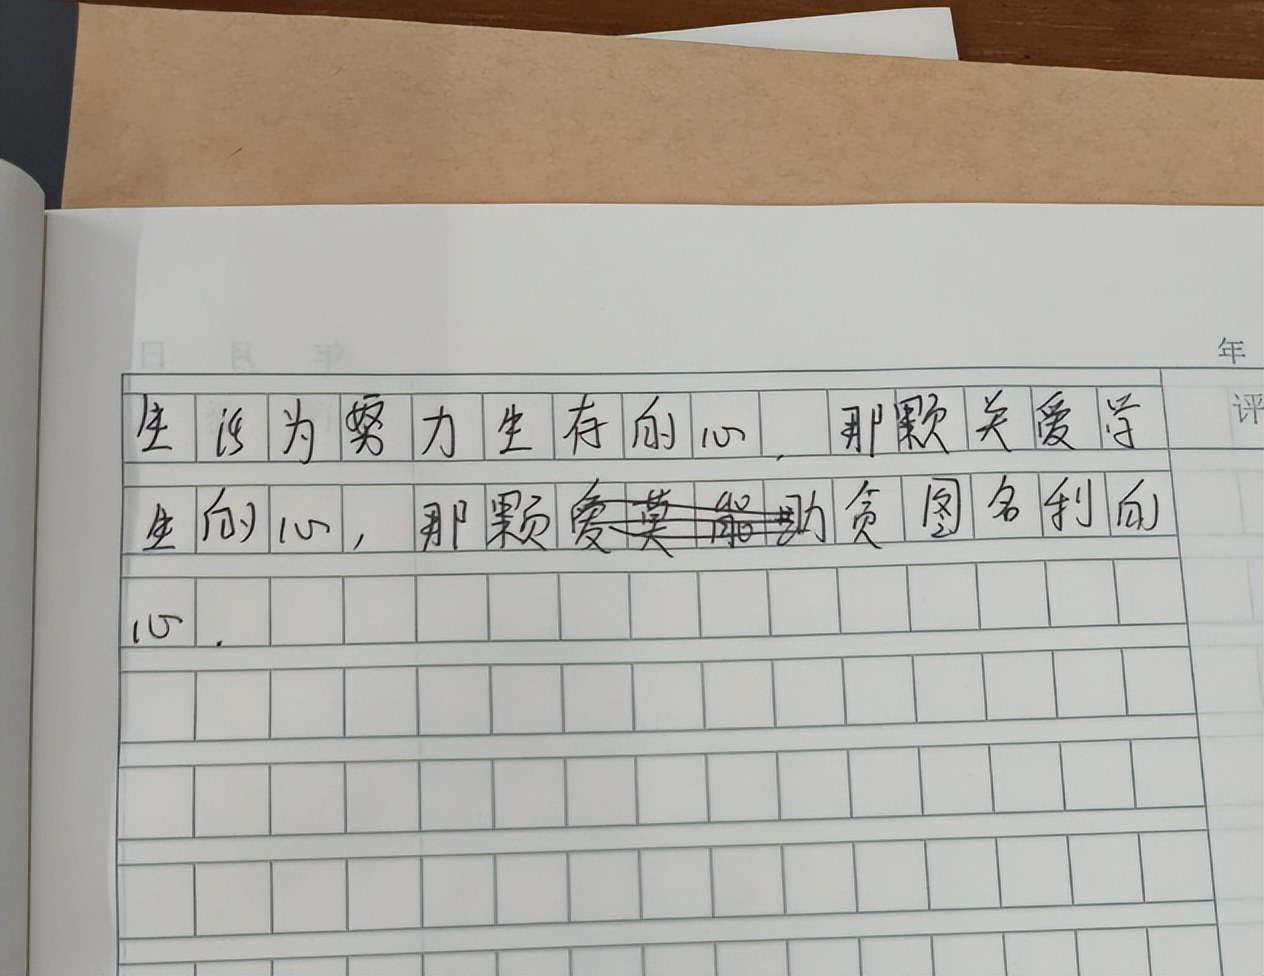 年
评
生活为努力生存的心，那颗关爱学
生的心，那颗爱莫能助贪图名利的
心．